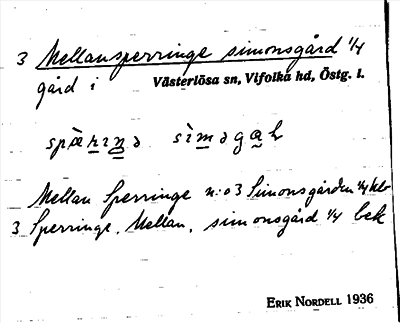 3 Mellansperringe simonsgård 1/4
gård i Västerlösa sn, Vifolka hd, Östg. l.
Mellan Sperringe n:o 3 Simonsgården 1/4
3 Sperringe, Mellan, simonsgård 1/4 bek
ERIK NORDELL 1936